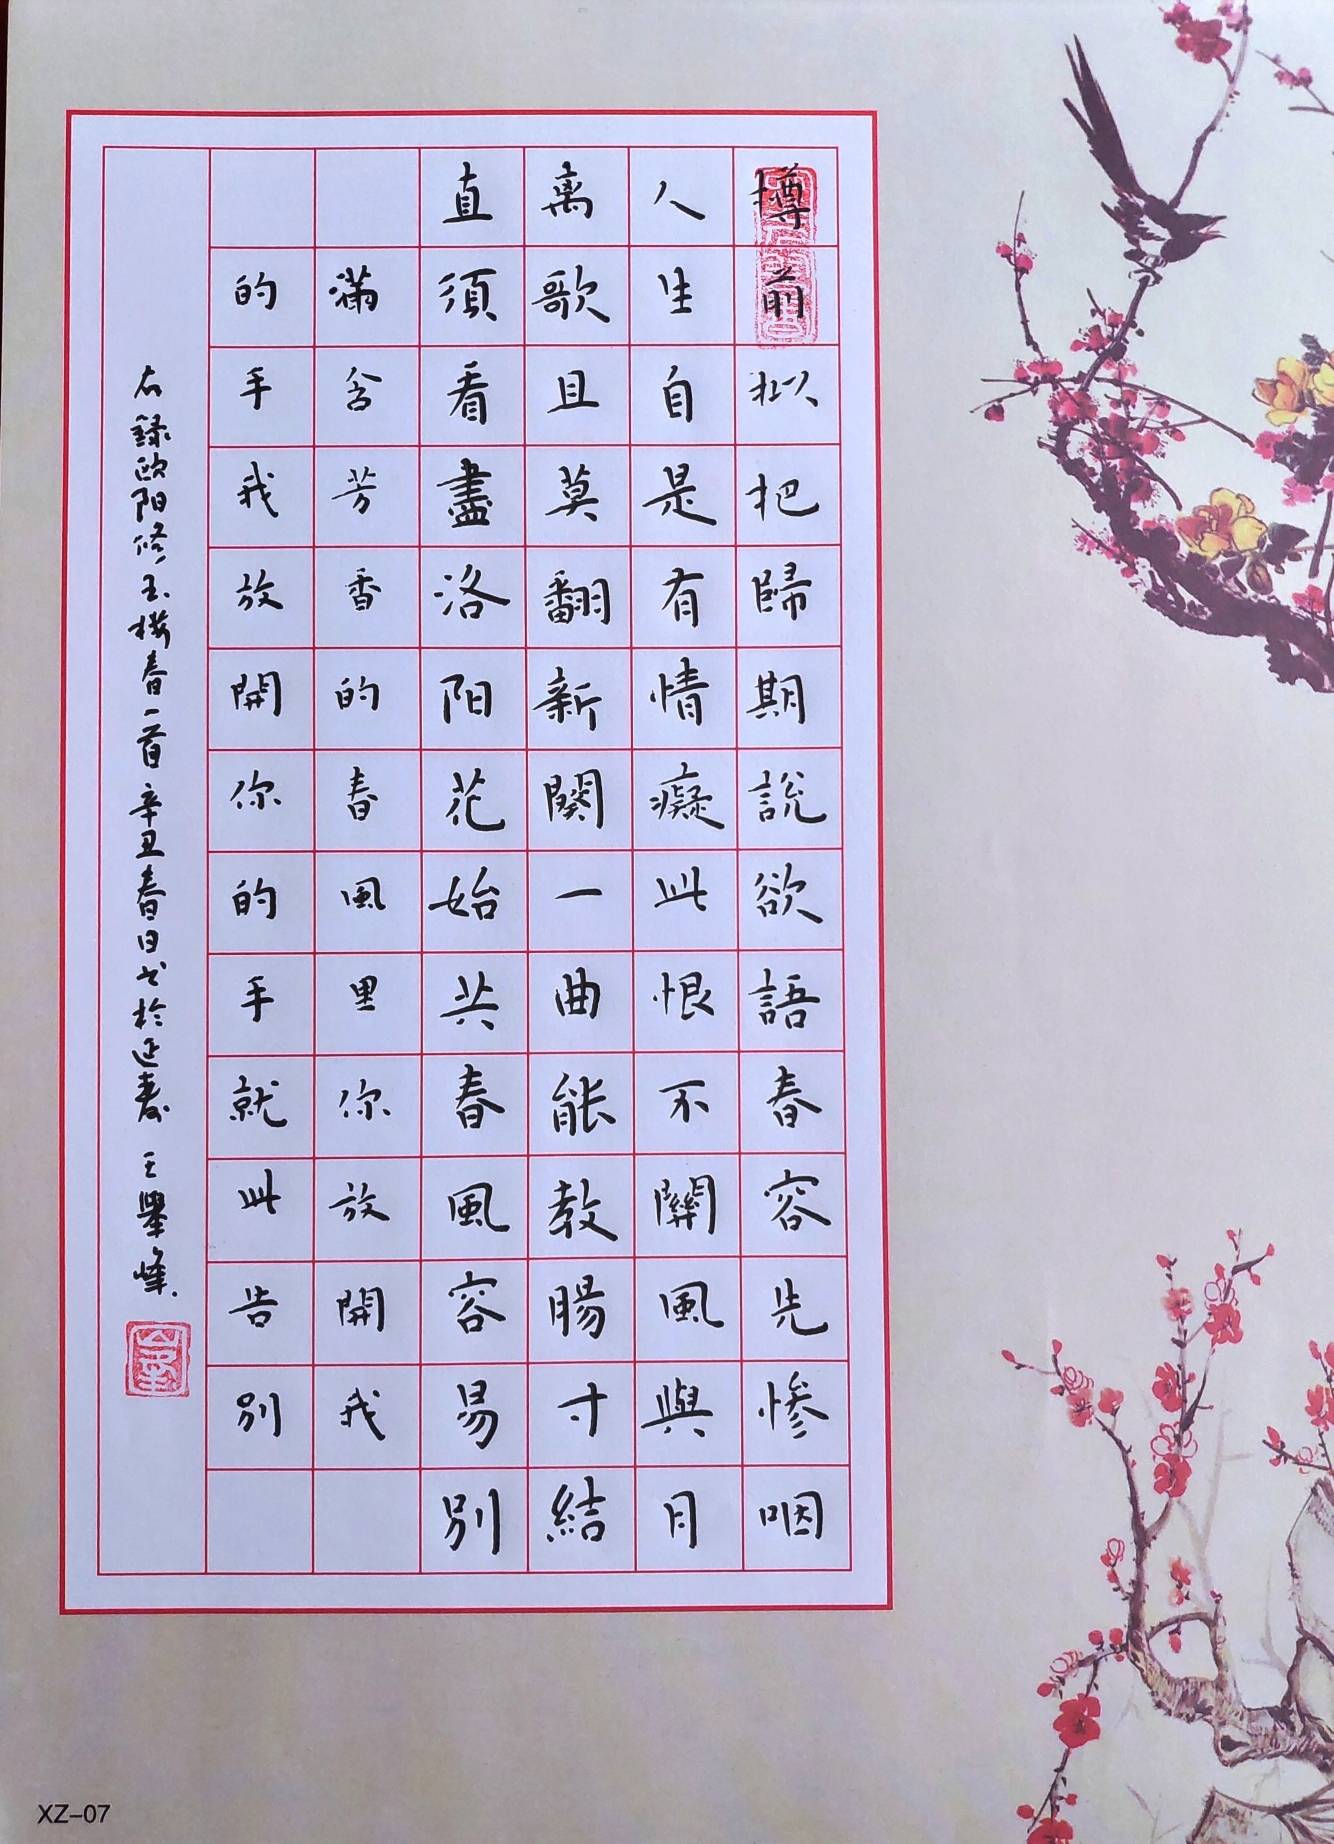 樽前拟把歸期說欲語春容先惨咽
人生自是有情癡此恨不關風與月
离歌且莫翻新闋一曲能教腸寸結
直須看盡洛阳花始共春風容易别
滿含芳香的春風里你放開我
的手我放開你的手就此告别
右錄欧阳修玉楼春一首 辛丑春日书於延寿 王舉峰
XZ-07